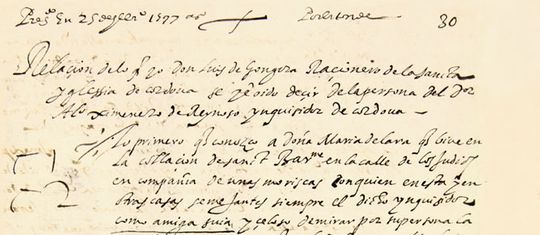 Pres.da En 25 de hen.o 1597 as 30
Relacion de lo q yo Don Luis de Gongora Racionero de la sancta
yglessia de cordoua se y e oido decir de la persona del Dor
Alo ximenez de Reynoso ynquisidor de cordoua —
Lo primero q conozco a doña Maria de lara q biue en
la collacion de sanct Barme en la calle de los Judios
en compañia de unas moriscas con quien en esta y en
otras casas semejantes siempre el dicho ynquisidor
como amiga suia y celoso de mirar por su persona la